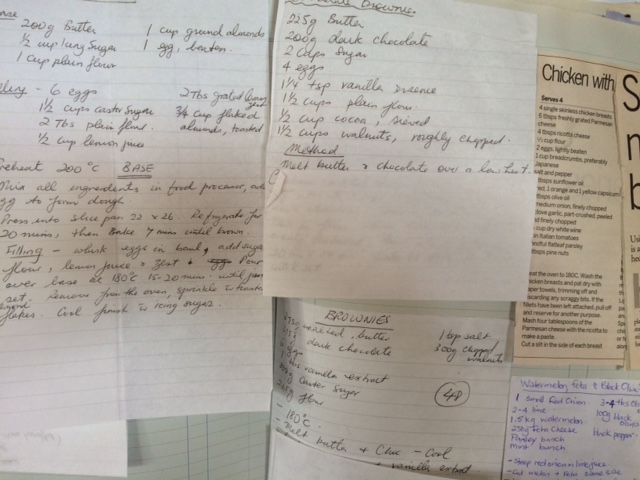 200g Butter
1 cup ground almonds
½ cup icing sugar
1 egg, beaten.
1 cup plain flour
6 eggs
1½ cups caster sugar
2 Tbs plain flour.
½ cup lemon juice
2 Tbs grated lemon
¾ cup flaked
almonds, toasted
Preheat 200°C BASE
all ingredients in food processor, add
egg to form dough
Press into slice pan 22 x 26. Refrigerate for
20 mins, then bake 7 mins until brown.
Filling - whisk eggs in bowl, add sugar
flour, lemon juice & zest & Pour
over base at 180°C 15-20 mins. until
set. Remove from the oven, sprinkle
flakes. Cool icing sugar.
Brownies
225g Butter
200g dark chocolate
2 cups sugar
4 eggs
1¼ tsp vanilla essence
1½ cups plain flour
½ cup cocoa, sieved
1½ cups walnuts, roughly chopped.
Method
Melt butter & chocolate over a low heat.
BROWNIES
375g unsalted butter
dark chocolate
vanilla extract
caster sugar
flour
1 tsp salt
300g chopped
walnuts
48
- 180°C
- Melt butter & Choc - Cool
vanilla extract
Chicken with
Serves 4
4 single skinless chicken breasts
6 tbsps freshly grated Parmesan
cheese
4 tbsps ricotta cheese
½ cup flour
2 eggs, lightly beaten
1 cup breadcrumbs, preferably
Japanese
salt and pepper
tbsps sunflower oil
red, 1 orange and 1 yellow capsicum
tbsps olive oil
medium onion, finely chopped
clove garlic, part-crushed, peeled
and finely chopped
cup dry white wine
Italian tomatoes
handful flatleaf parsley
tbsps pine nuts
Heat the oven to 180C. Wash the
chicken breasts and pat dry with
paper towels, trimming off and
discarding any scraggy bits. If the
fillets have been left attached, pull off
and reserve for another purpose.
Mash four tablespoons of the
Parmesan cheese with the ricotta to
make a paste.
Cut a slit in the side of each breast
S
Watermelon, feta & Black
1 small Red Onion
2-4 lime
1.5kg watermelon
250g Feta Cheese
Parsley bunch
mint bunch
3-4 tbs
100g black
olives
black pepper
- Steep red onion in lime juice
- Cut melon & feta same size